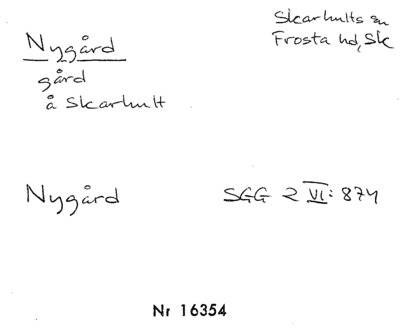 Nygård
gård
å Skarhult
Skarhults sn
Frosta hd, Sk
Nygård
SGG 2 VI: 874
Nr 16354